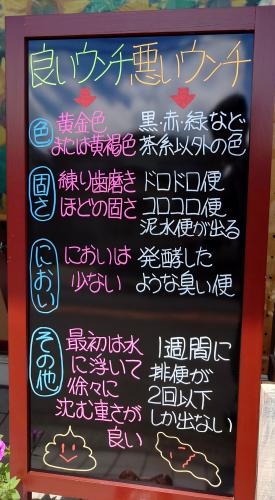 良いウンチ 悪いウンチ
色
黄金色
または黄褐色
黒・赤・緑など
茶系以外の色
固さ
練り歯磨き
ほどの固さ
ドロドロ便
コロコロ便
泥水便が出る
におい
においは
少ない
発酵した
ような臭い便
その他
最初は水
に浮いて
徐々に
沈む重さが
良い
1週間に
排便が
2回以下
しか出ない